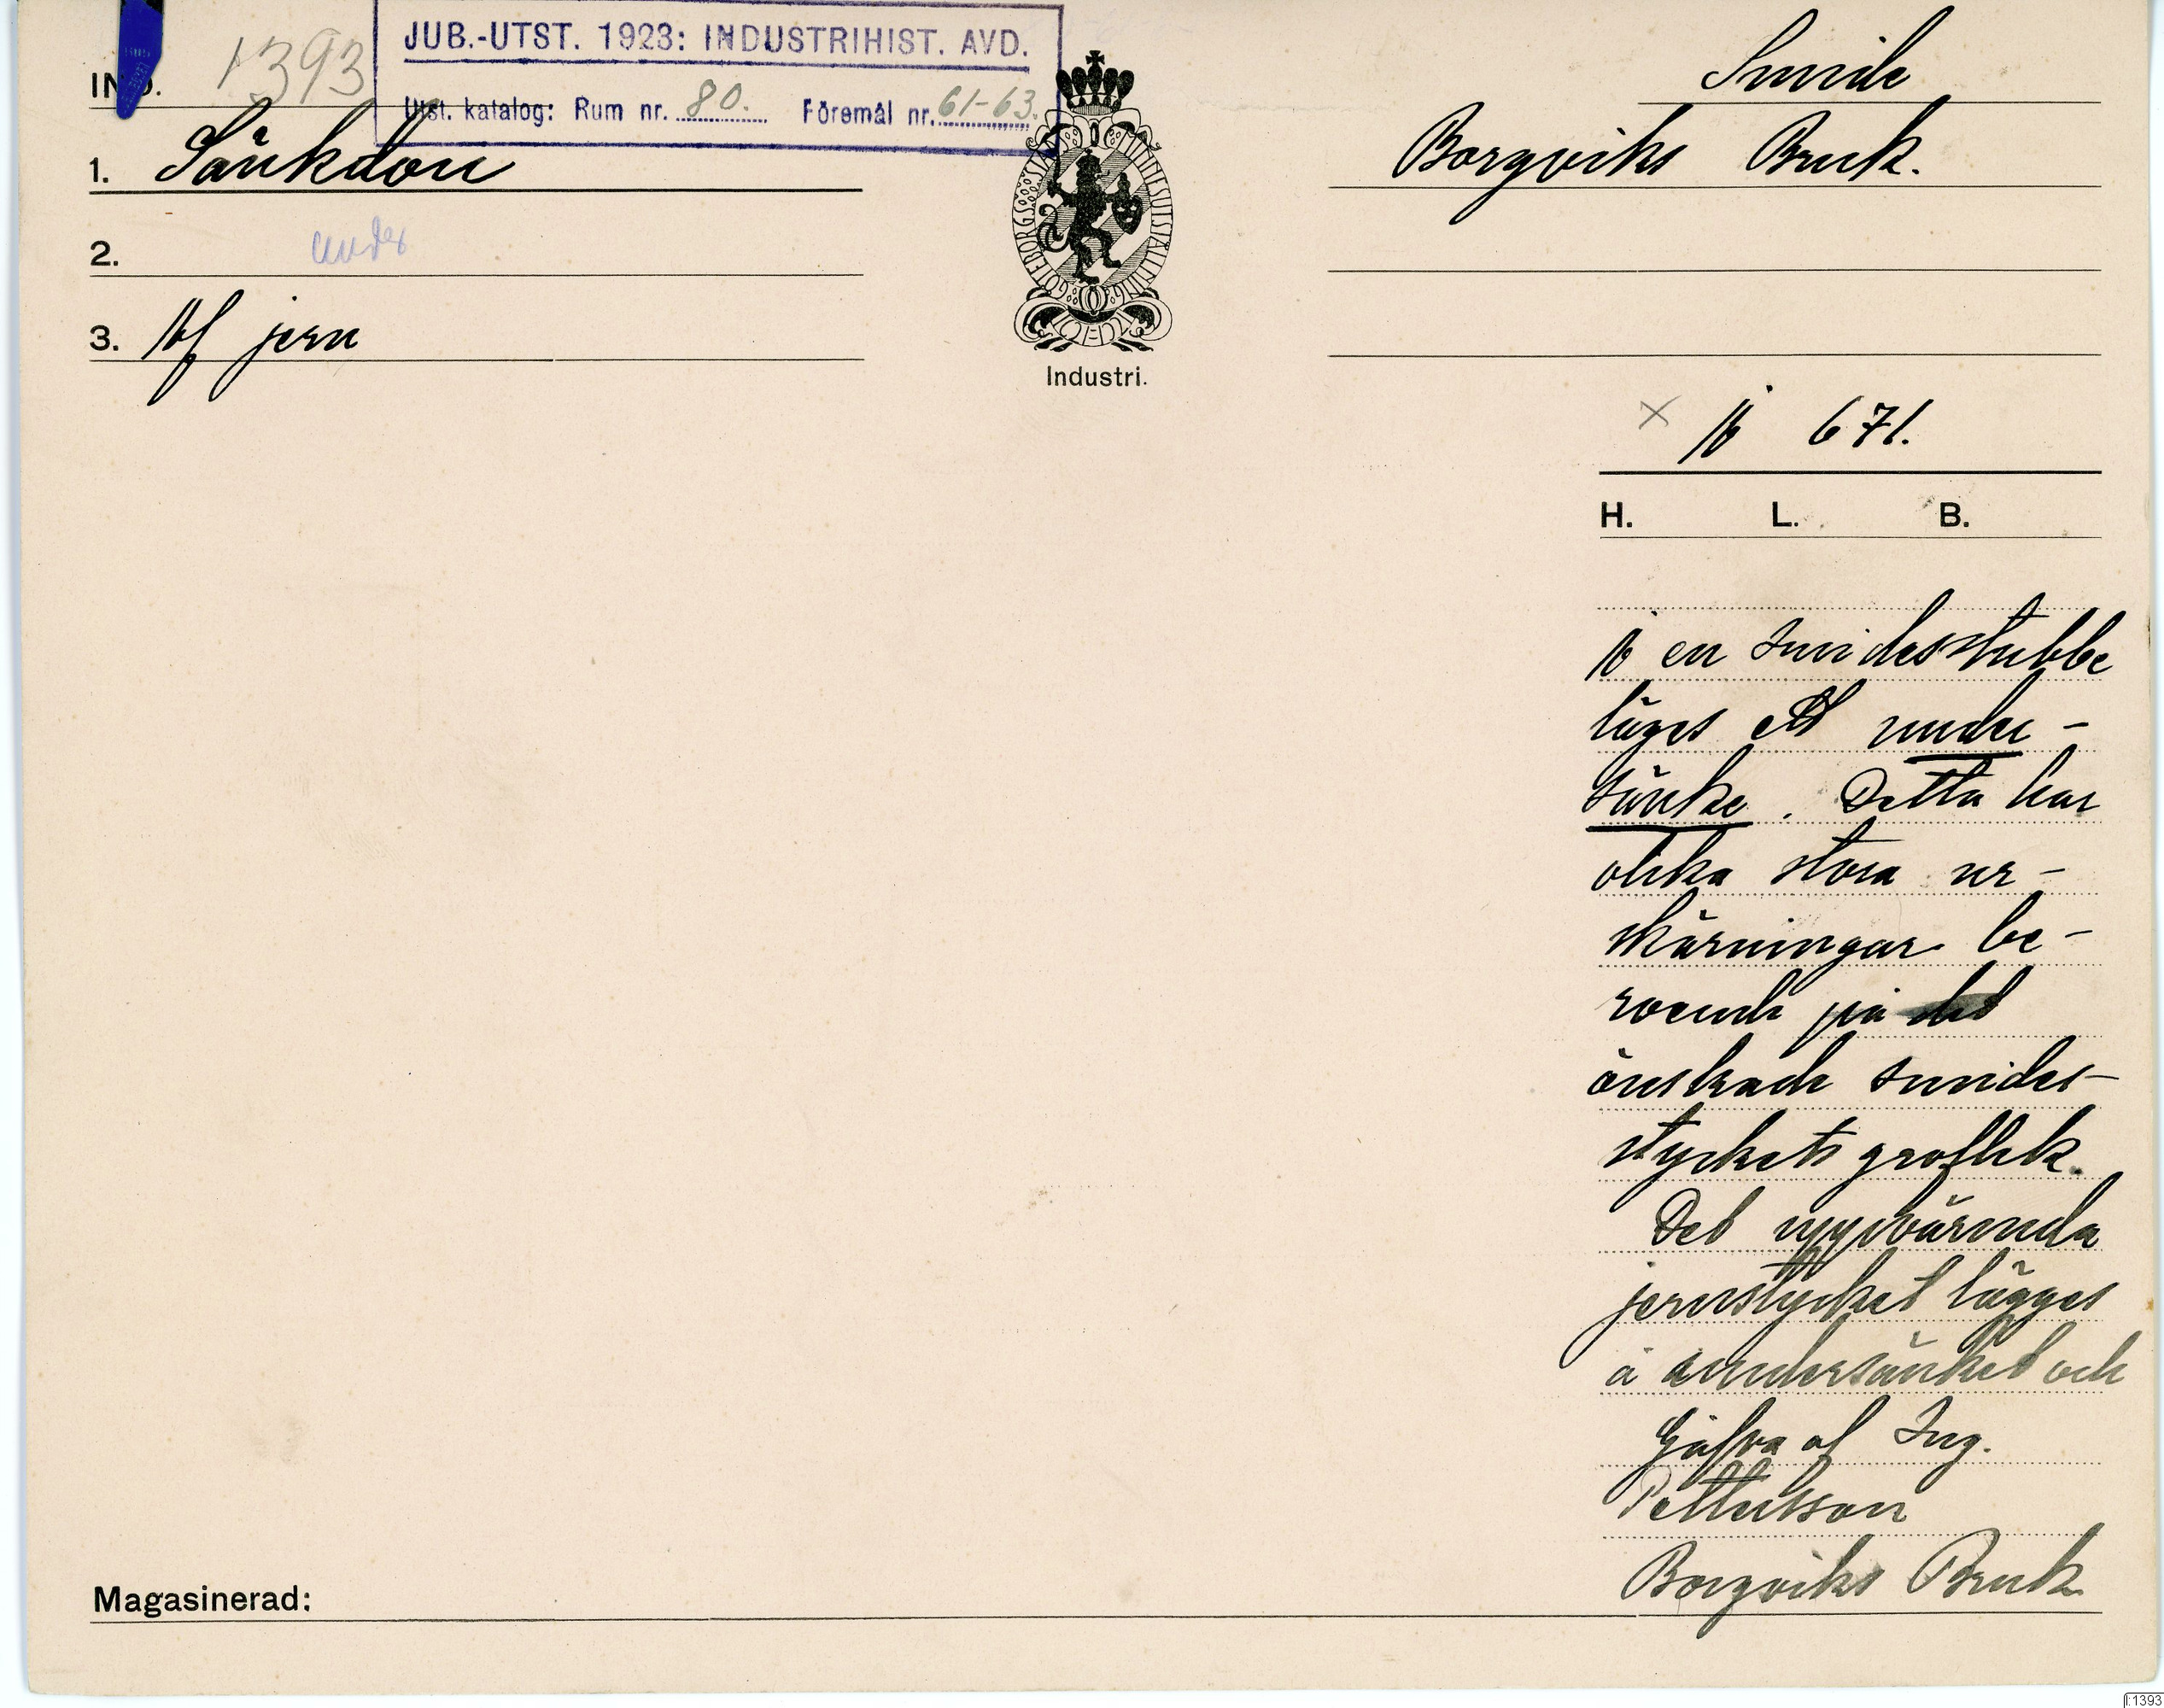 JUB.-UTST. 1923: INDUSTRIHIST. AVD.
Utst. katalog: Rum nr. 80. Föremål nr. 61-63.
IND. 1393
Smide
1. Sänkdon
Borgviks Bruk.
2. under
3. Af jern
GÖTEBORGS JUBILEUMSUTSTÄLLNING
Industri.
× Å 671.
H. L. B.
Å en smidesstubbe
läges ett under-
sänke. Detta har
olika stora ur-
skärningar be-
roende på det
önskade smides-
styckets groflek.
Det uppvärmda
jernstycket lägges
å undersänket och
Gåfva af Ing.
Pettersson
Borgviks Bruk
Magasinerad:
I:1393